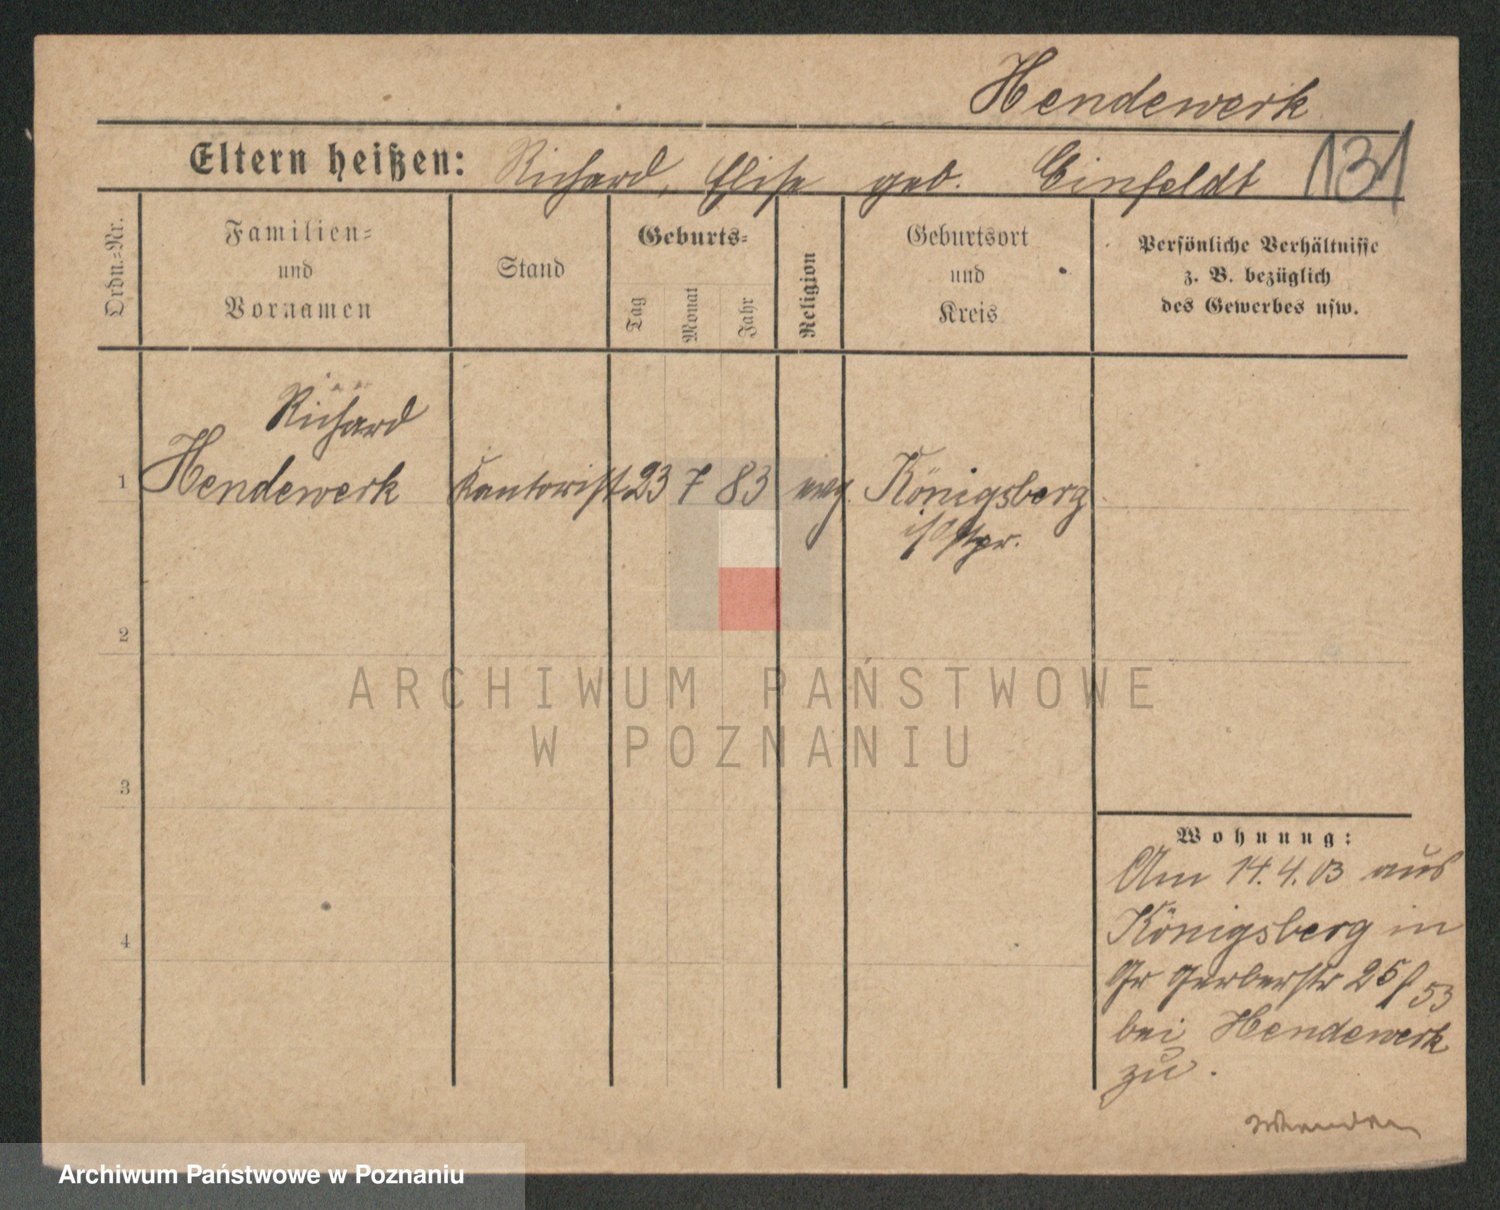 Hendewerk
Eltern heißen: Richard, Elise geb. Einfeldt 131
Ordn.-Nr.
Familien-
und
Vornamen
Stand
Geburts-
Tag
Monat
Jahr
Religion
Geburtsort
und
Kreis
Persönliche Verhältnisse
z. B. bezüglich
des Gewerbes usw.
Richard
1 Hendewerk Kantorist 23 7 83 evg. Königsberg
i/Ostpr.
2
3
4
Wohnung:
Am 14.4.03 aus
Königsberg in
Gr Gerberstr 25/53
bei Hendewerk
zu.
ARCHIWUM PAŃSTWOWE
W POZNANIU
Archiwum Państwowe w Poznaniu